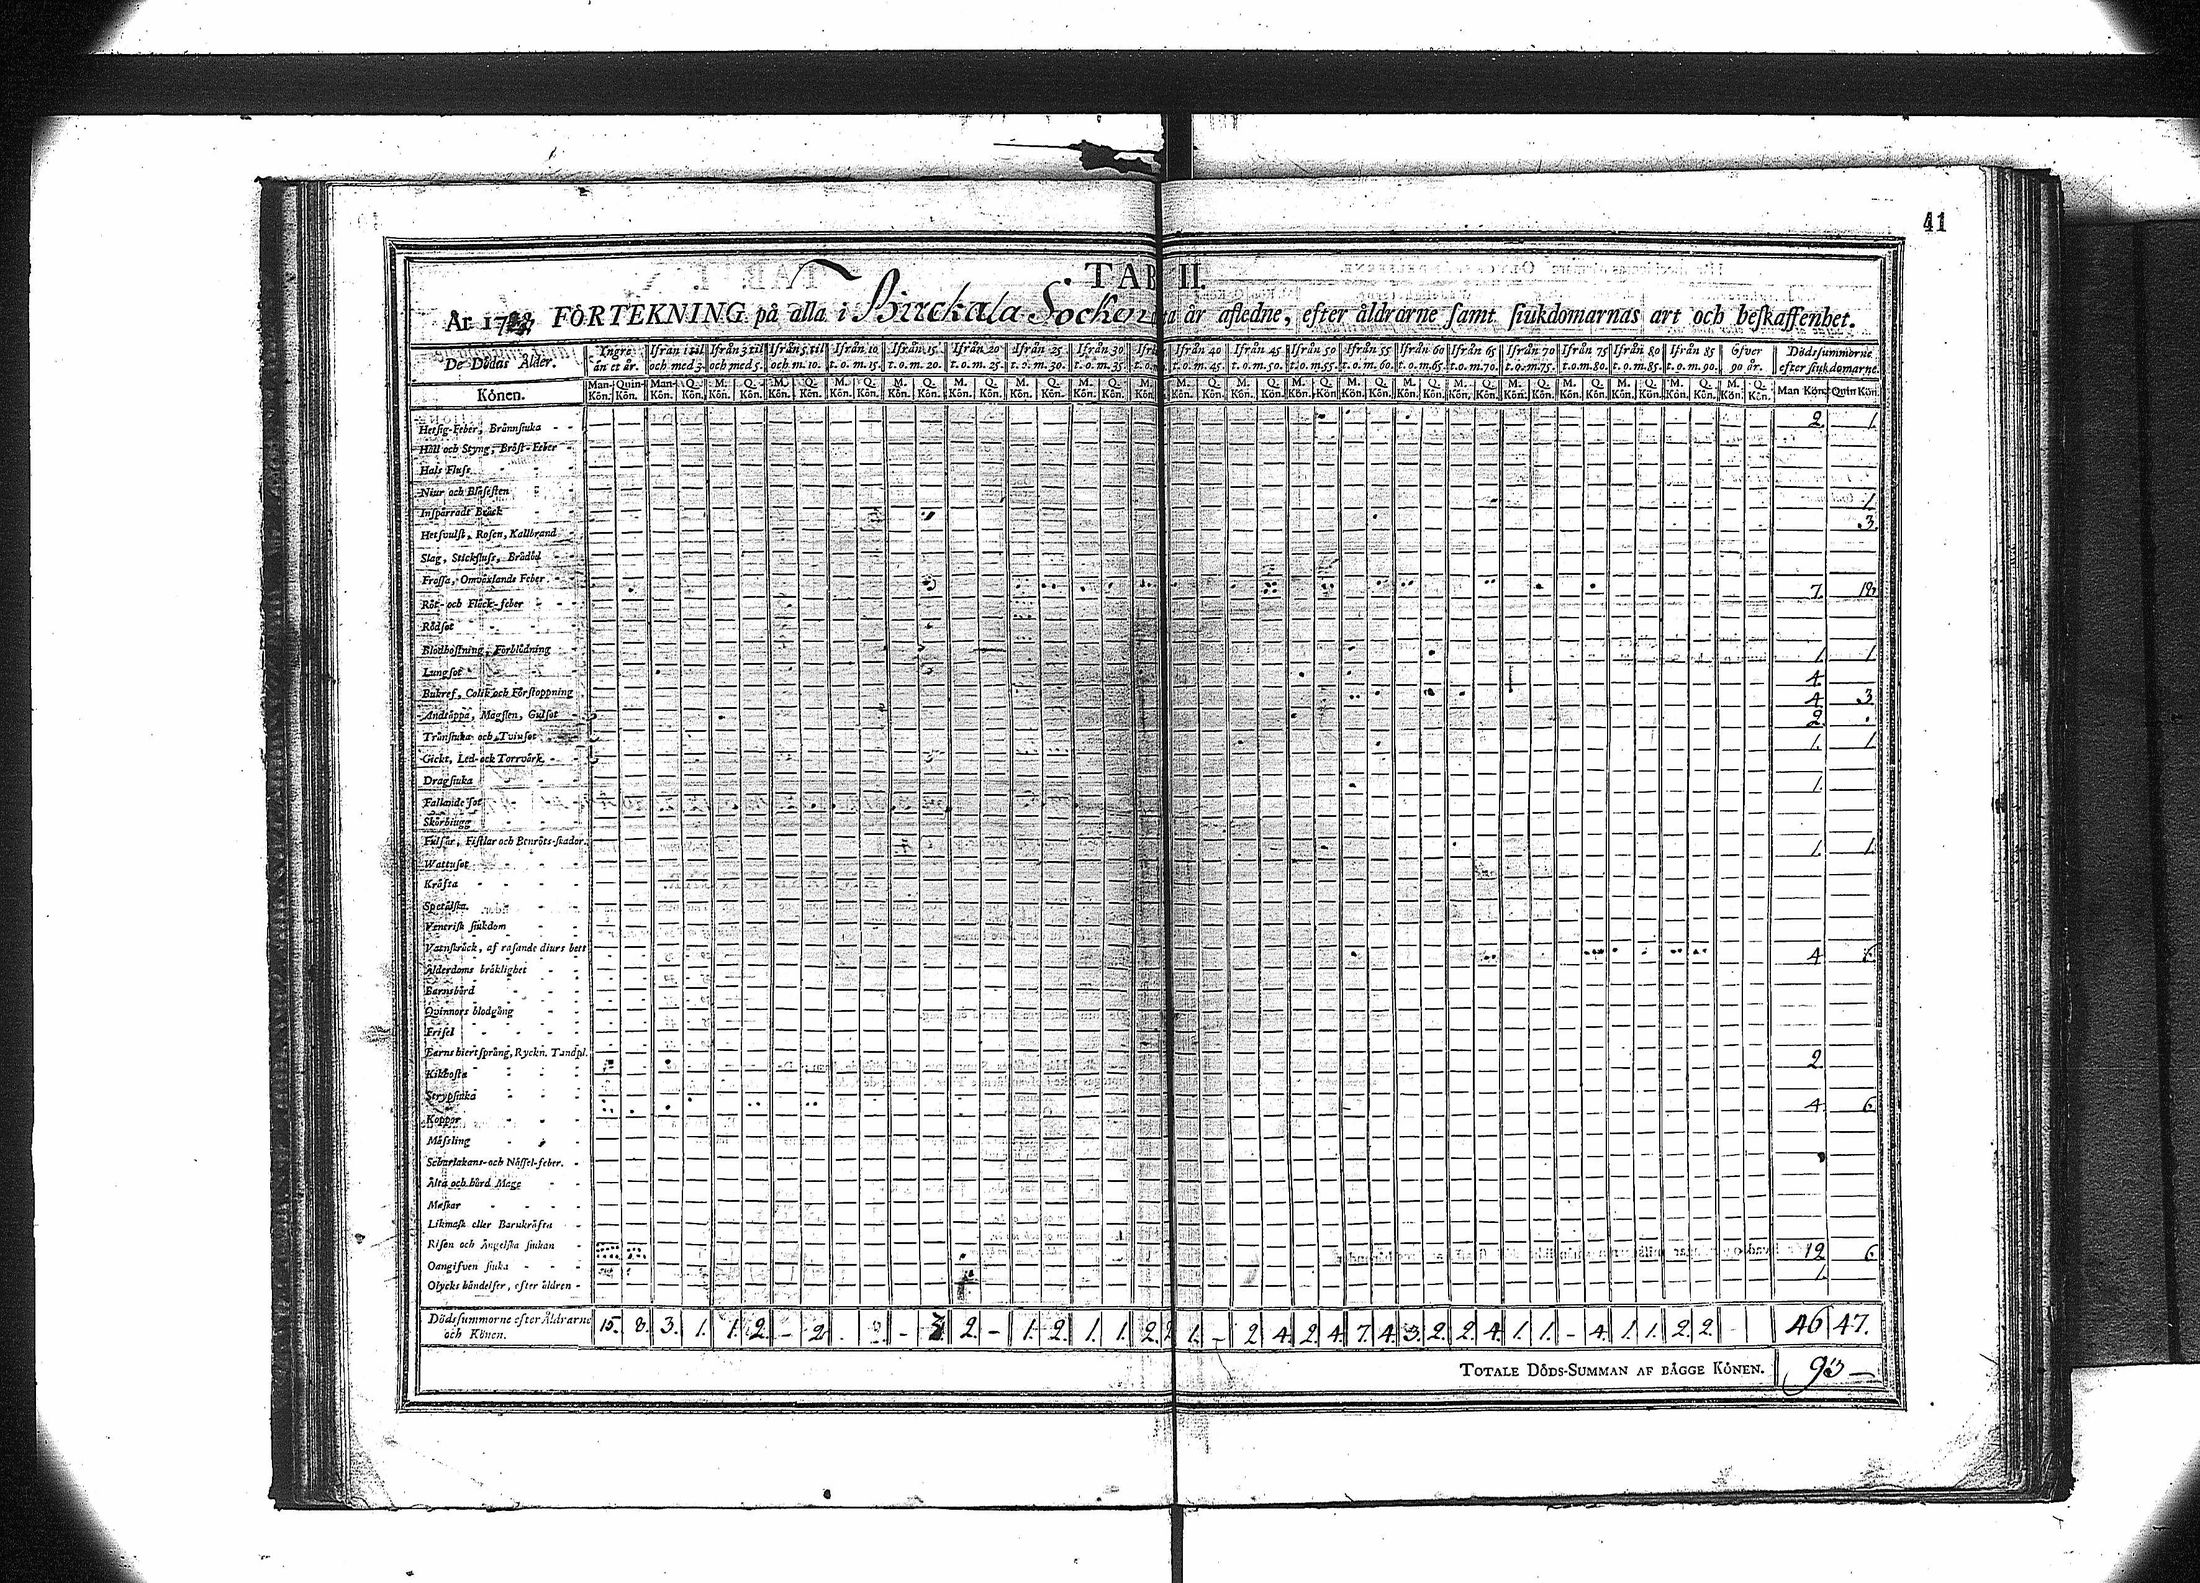 41
TAB II.
År 17 FÖRTEKNING på alla i Birckala Socken år afledne, efter åldrarne samt siukdomarnas art och beskaffenhet.
De Dödas Ålder. Yngre än et år. Ifrån 1 til och med 3. Ifrån 3 til och med 5. Ifrån 5 til och m. 10. Ifrån 10 t. o. m. 15. Ifrån 15 t. o. m. 20. Ifrån 20 t. o. m. 25. Ifrån 25 t. o. m. 30. Ifrån 30 t. o. m. 35. Ifrån 40 t. o. m. 45. Ifrån 45 t. o. m. 50. Ifrån 50 t. o. m. 55. Ifrån 55 t. o. m. 60. Ifrån 60 t. o. m. 65. Ifrån 65 t. o. m. 70. Ifrån 70 t. o. m. 75. Ifrån 75 t. o. m. 80. Ifrån 80 t. o. m. 85. Ifrån 85 t. o. m. 90. Öfver 90 år. Dödssummorne efter siukdomarne.
Könen. Man-Kön. Quin-Kön. Man-Kön. Q. Kön. M. Kön. Q. Kön. M. Kön. Q. Kön. M. Kön. Q. Kön. M. Kön. Q. Kön. M. Kön. Q. Kön. M. Kön. Q. Kön. M. Kön. Q. Kön. M. Kön. M. Kön. Q. Kön. M. Kön. Q. Kön. M. Kön. Q. Kön. M. Kön. Q. Kön. M. Kön. Q. Kön. M. Kön. Q. Kön. M. Kön. Q. Kön. M. Kön. Q. Kön. M. Kön. Q. Kön. M. Kön. Q. Kön. M. Kön. Q. Kön. Man Kön. Quin Kön.
Hetsig-Feber, Brännsiuka 2. 1.
Håll och Styng, Bröst-Feber
Hals Fluss
Niur och Blåsesten
Inspärradt Bråck 1.
Hetsvulst, Rosen, Kallbrand 3.
Slag, Stickfluss, Brådöd
Frossa, Omväxlande Feber
Röt- och Fläck-feber 7. 18.
Rödsot
Blodhostning, Förblödning
Lungsot 1. 1.
Bukref, Colik och Förstoppning 4.
Andtäppa, Magsten, Gulsot 4. 3.
Trånsiuka och Tvinsot 2.
Gickt, Led- och Torrvärk 1. 1.
Dragsiuka
Fallande Sot 1.
Skörbiugg
Fulsår, Fistlar och Benröts-skador
Wattusot 1. 1.
Kräfta
Spetälska
Venerisk siukdom
Vatnskräck, af rasande diurs bett
Ålderdoms bräklighet 4 6.
Barnsbörd
Qvinnors blodgång
Frisel
Barns hiertsprång, Ryckn. Tandpl.
Kikhosta 2
Strypsiuka
Koppor 4. 6.
Mässling
Scharlakans- och Nässel-feber.
Älta och hård Mage
Maskar
Likmask eller Barnkräfta
Risen och Ängelska siukan
Oangifven siuka 12 6.
Olycks händelser, efter åldren 1.
Dödssummorne efter Åldrarne och Könen. 15. 8. 3. 1. 1. 2. - 2. - 2. - 1. 2. 1. 1. 2. 2 1. - 2 4. 2. 4. 7. 4. 3. 2. 2. 4. 1. 1. - 4. 1. 1. 2. 2. 46 47.
TOTALE DÖDS-SUMMAN AF BÅGGE KÖNEN. 93 —